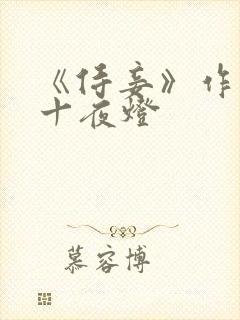 《侍妾》作
十夜燈
慕容博